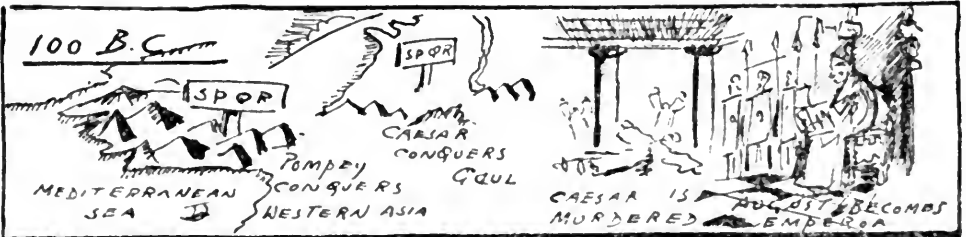 100 B.C
SPQR
MEDITERRANEAN
SEA
POMPEY
CONQUERS
WESTERN ASIA
SPQR
CAESAR
CONQUERS
GAUL
CAESAR IS
MURDERED
BECOMES
EMPEROR